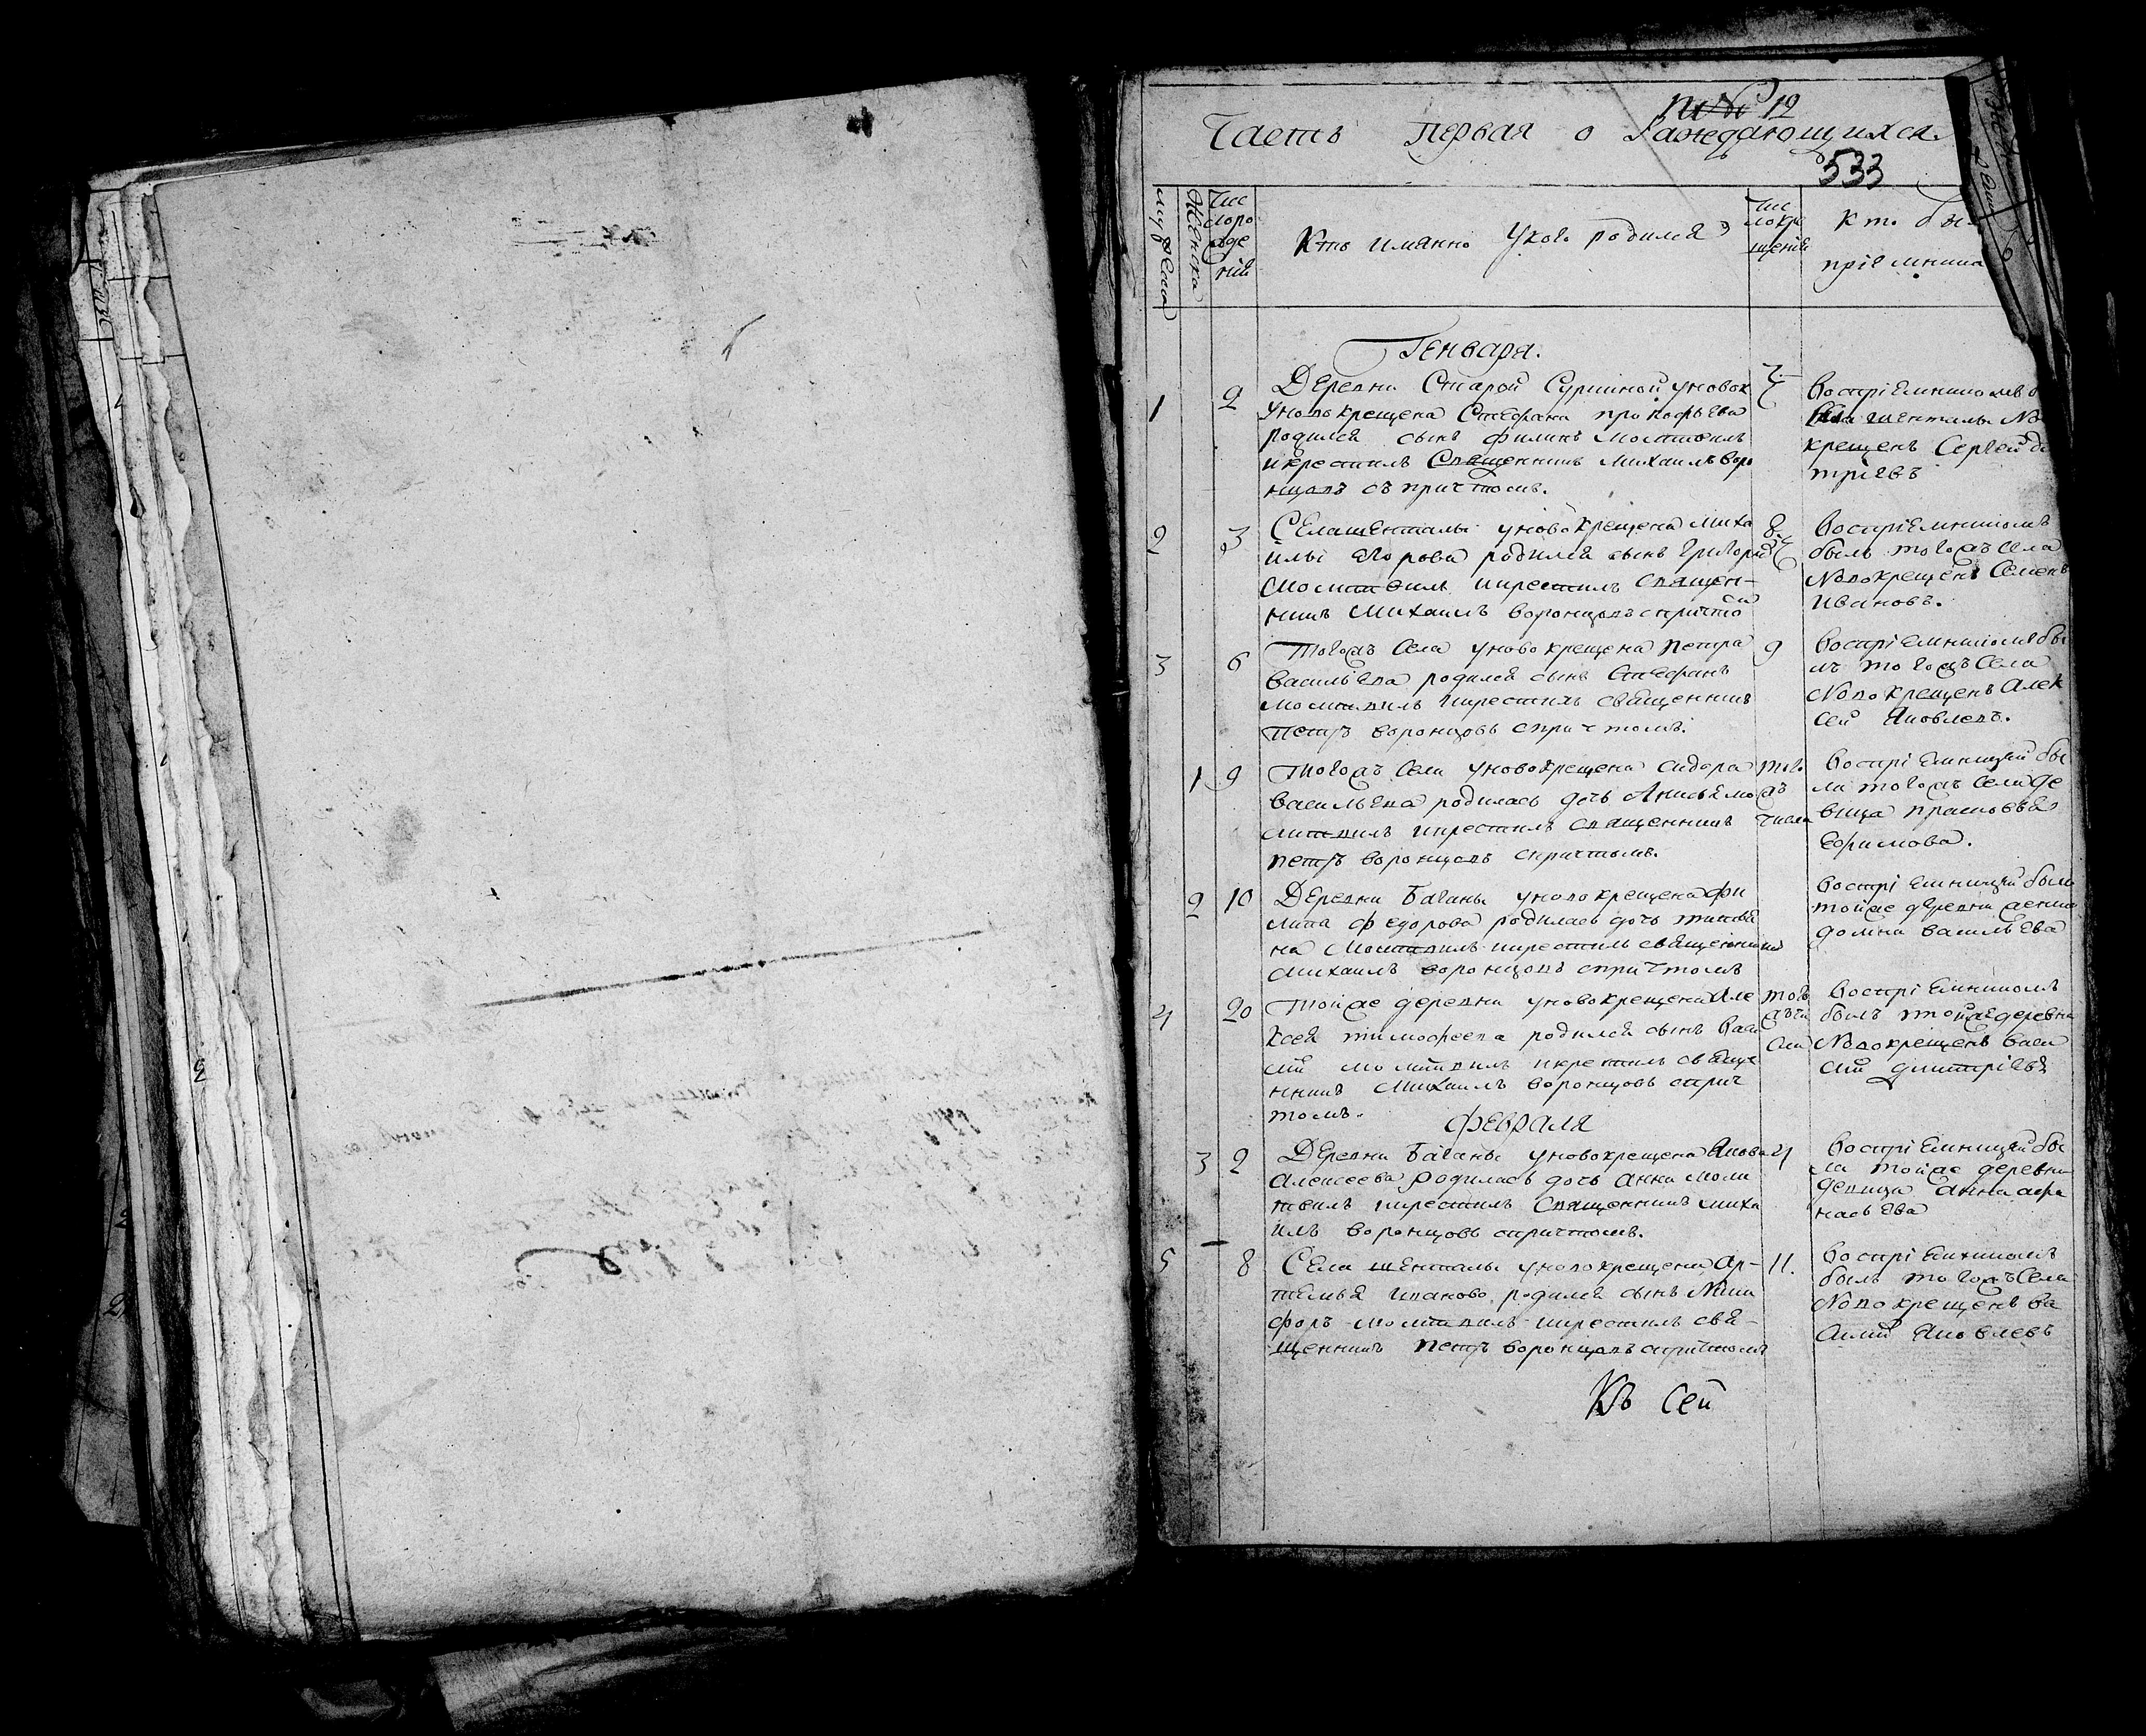 12
Часть первая о Раждающихся.
533
мужеска
Женска
Чис
лоро
жде
нія
Кто имянно Укого родился
Чис
локре
щенія
кто бы
пріемника
Генваря.
1 2 Деревни Старой Суршиной уновок
уновокрещена Стефана прокофьева
родился сынъ филипъ молитвилъ
икрестилъ Священникъ Михаилъ воро
нцовъ съ причтомъ.
7
Воспріемникомъ б
села шенталы Но
крещенъ Сергей д
тріевъ
2 3 Села шенталы уновокрещена миха
илы егорова родился сынъ Григорій
Молитвилъ икрестилъ Священ-
никъ Михаилъ воронцовъ спричто
8
Воспріемникомъ
былъ тогожъ села
Новокрещенъ Семенъ
Ивановъ.
3 6 Тогожъ Села уновокрещена петра
васильева родился сынъ Стефанъ
молитвилъ икрестилъ священникъ
петръ воронцовъ спричтомъ.
9
Воспріемникомъ бы
лъ тогожъ Села
Новокрещенъ Алек
сей Яковлевъ.
1 9 Тогожъ Села уновокрещена сидора
васильева родилась дочь Анисья мо
литвилъ икрестилъ священникъ
петръ воронцовъ спричтомъ.
того
жъ
числа
Воспріемницей бы
ла тогожъ Села де
вица прасковья
Ефимова.
2 10 Деревни Баганы уновокрещена фи
липа федорова родилась дочь татья
на Молитвилъ икрестилъ священникъ
Михаилъ воронцовъ спричтомъ
Воспріемницей была
тойже деревни женка
домна васильева
4 20 Тойже деревни уновокрещена Але
ксея тимофеева родился сынъ Васи
лій молитвилъ икрестилъ свяще
нникъ Михаилъ воронцовъ сприч
томъ.
того
жъ чи
сла
Воспріемникомъ
былъ тойже деревни
Новокрещенъ васи
лій дмитріевъ
февраля
3 2 Деревни Баганы уновокрещена Якова
Алексеева родилась дочь анна моли
твилъ икрестилъ Священникъ миха
илъ воронцовъ спричтомъ.
4
Воспріемницей бы
ла тойже деревни
девица анна афа
насьева
5 8 Села шенталы уновокрещена Ар-
темья иваново родился сынъ Ники
форъ молитвилъ икрестилъ свя-
щенникъ петръ воронцовъ спричтомъ
11.
Воспріемникомъ
былъ тогожъ Села
Новокрещенъ ва
силій Яковлевъ
Къ сей